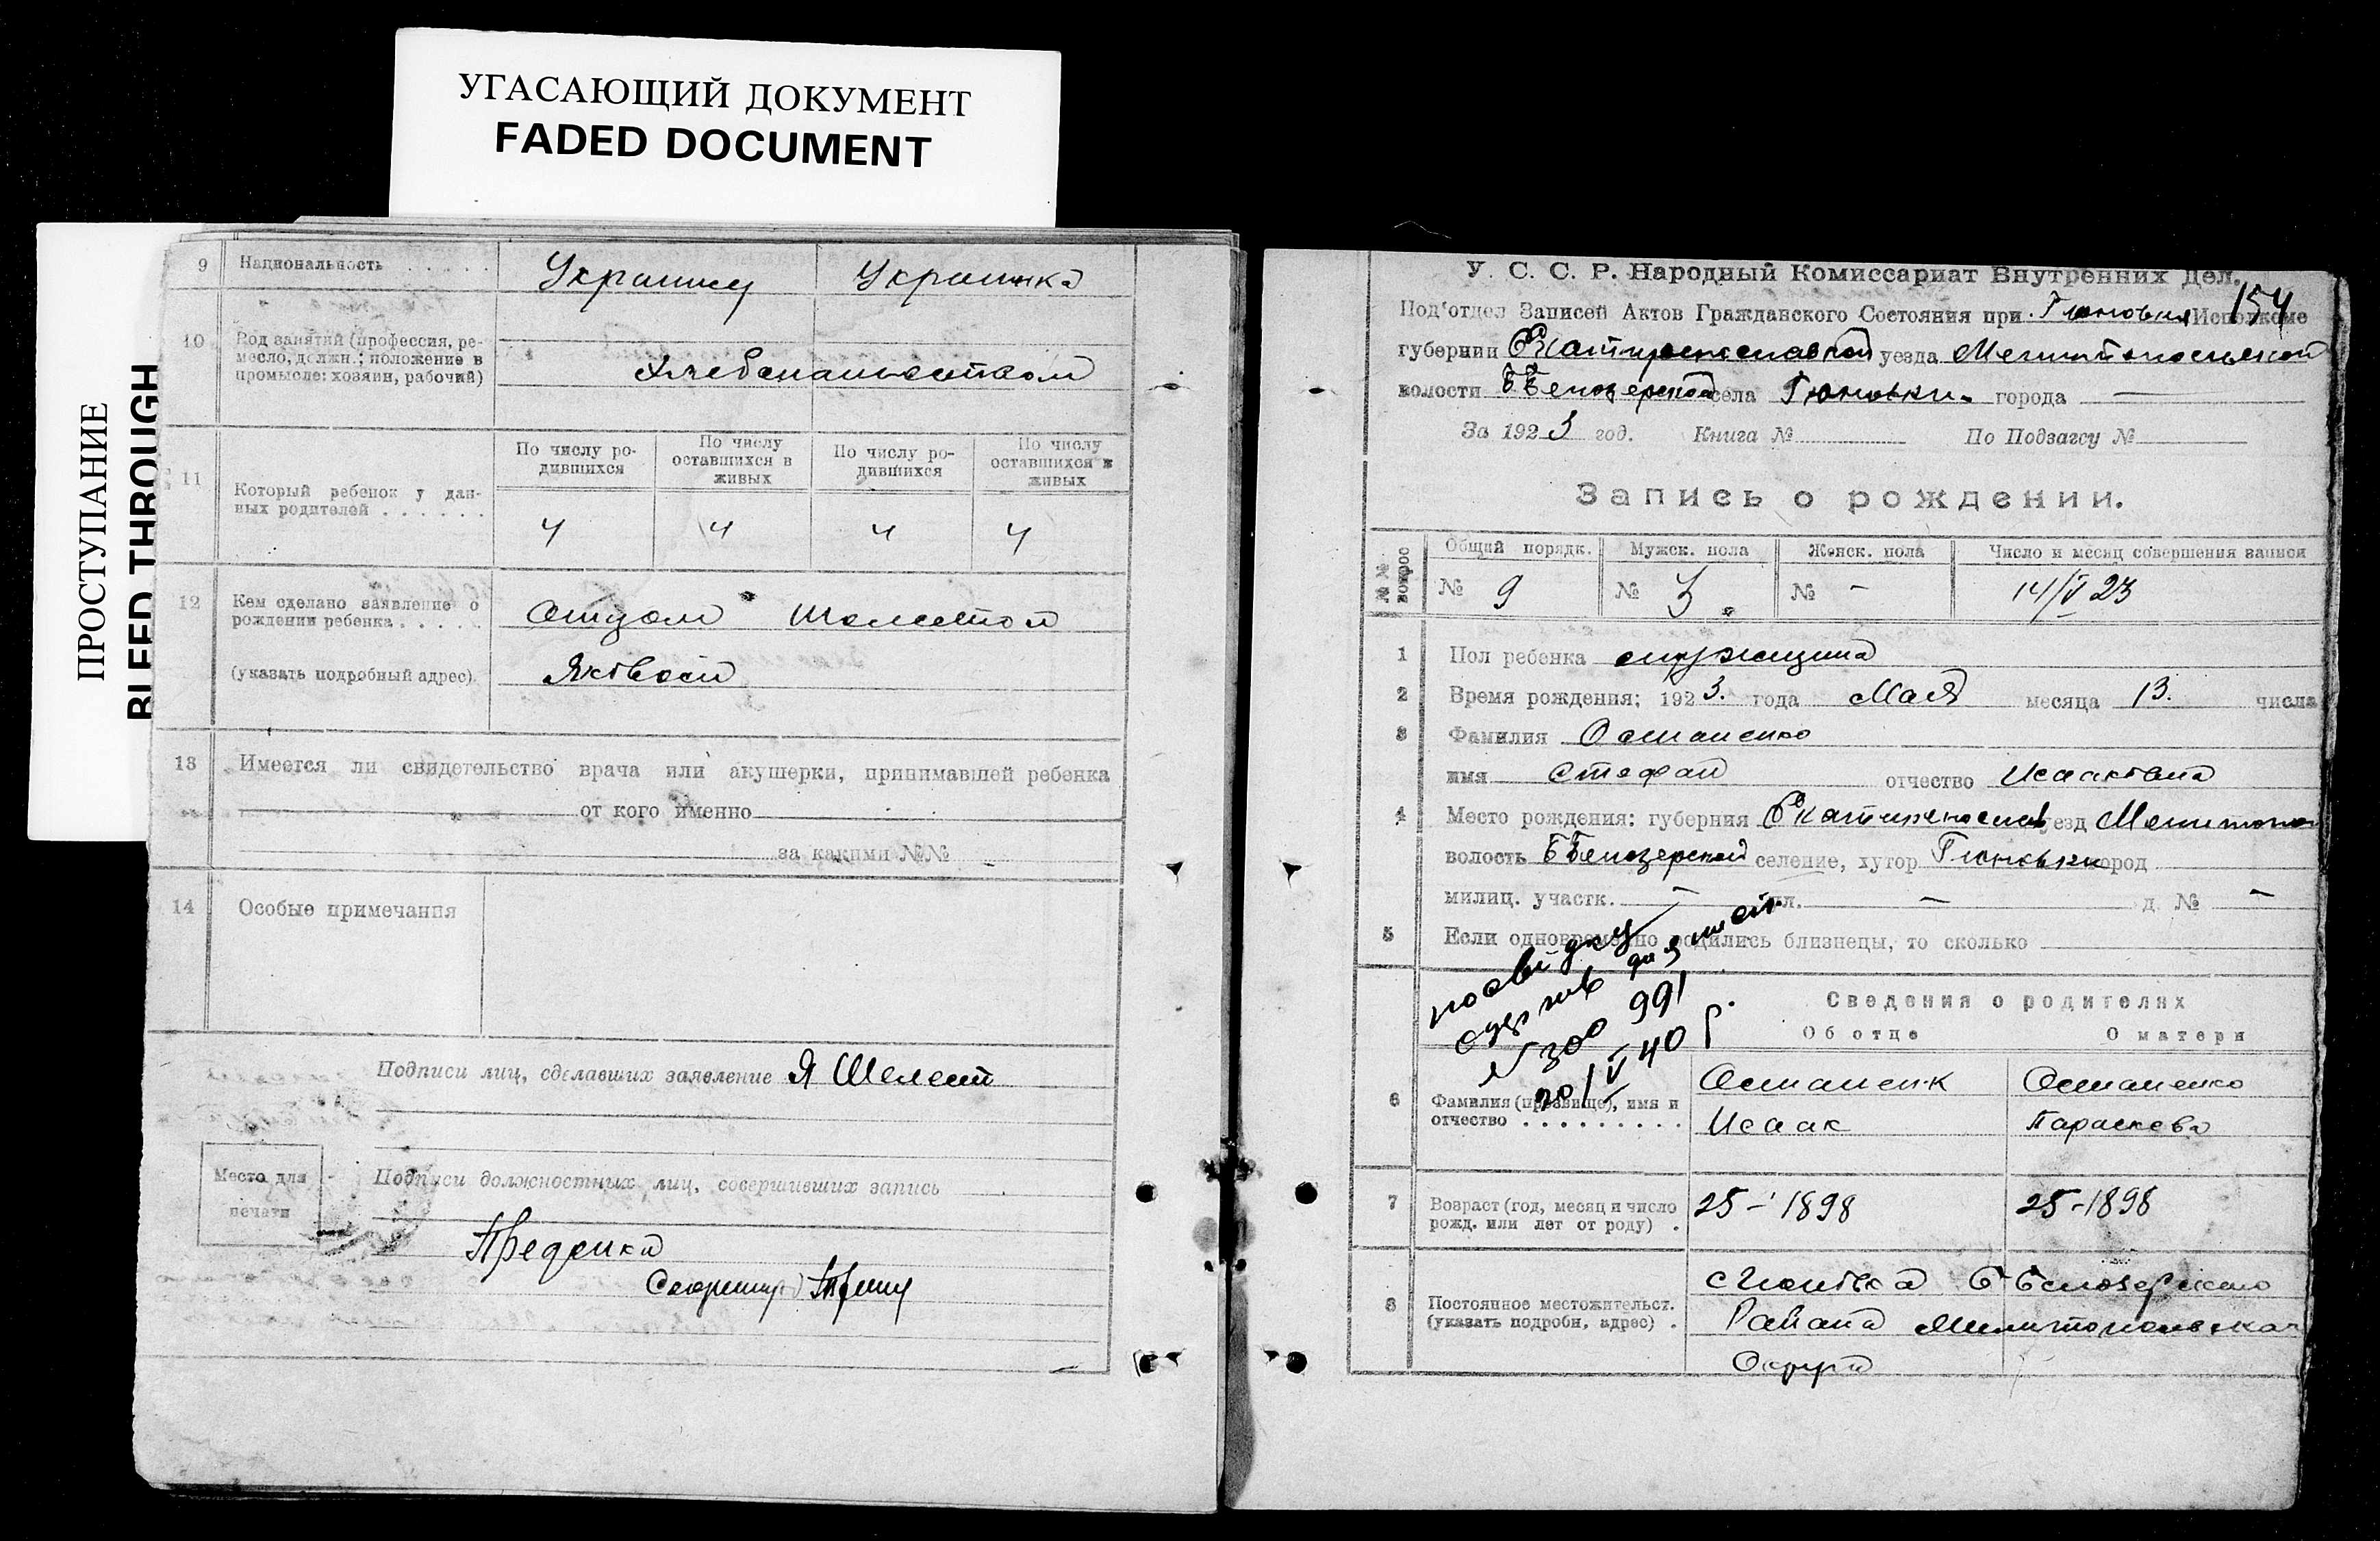 УГАСАЮЩИЙ ДОКУМЕНТ
FADED DOCUMENT
ПРОСТУПАНИЕ
BLEED THROUGH
9 Национальность . . . . . Украинец Украинка
10 Род занятий (профессия, ре-
месло, должн.; положение в
промысле: хозяин, рабочий)
Хлебопашеством
11 Который ребенок у дан-
ных родителей . . . . . .
По числу ро-
дившихся
По числу
оставшихся в
живых
По числу ро-
дившихся
По числу
оставшихся в
живых
4 4 4 4
12 Кем сделано заявление о
рождении ребенка . . . . . отцом Шелестом
(указать подробный адрес). Яковом
13 Имеется ли свидетельство врача или акушерки, принимавшей ребенка
от кого именно
за какими №№ –
14 Особые примечания
Подписи лиц, сделавших заявление Я Шелест
Место для
печати
Подписи должностных лиц, совершивших запись
Секретарь
У. С. С. Р. Народный Комиссариат Внутренних Дел.
154
Под'отдел Записей Актов Гражданского Состояния при Гюновки Исполкоме
губернии Екатиренославкой уезда Мелитопольской
волости Б Белозерской села Гюновки города —
За 1923 год. Книга № По Подзагсу №
Запись о рождении.
№№ вопрос
Общий порядк. Мужск. пола Женск. пола Число и месяц совершения записи
№ 9 № 3 № – 14/V 23
1 Пол ребенка мужщина
2 Время рождения: 1923. года Мая месяца 13. числа
3 Фамилия Остапенко
имя Стефан отчество Исаковича
4 Место рождения: губерния Екатиренослав уезд Мелитопол
волость Б Белозерской селение, хутор Гюновки город
милиц. участк. — ул. — д. № –
5 Если одновременно родились близнецы, то сколько
посвідку
одержив
№ 300 991
20/V 40 р.
Сведения о родителях
Об отце О матери
6 Фамилия (прозвище), имя и
отчество . . . . . . . . .
Остапенк
Исаак
Остапенко
Параскева
7 Возраст (год, месяц и число
рожд. или лет от роду) .
25 – 1898 25-1898
8 Постоянное местожительст.
(указать подробн. адрес) .
с Гюновка Б Белозерского
Района Мелитопольской
Округа